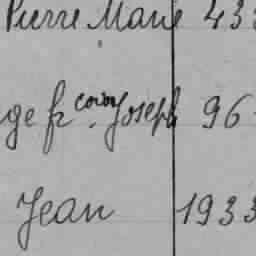 Pierre Marie 433
ge fr Joseph 96
Jean 1933